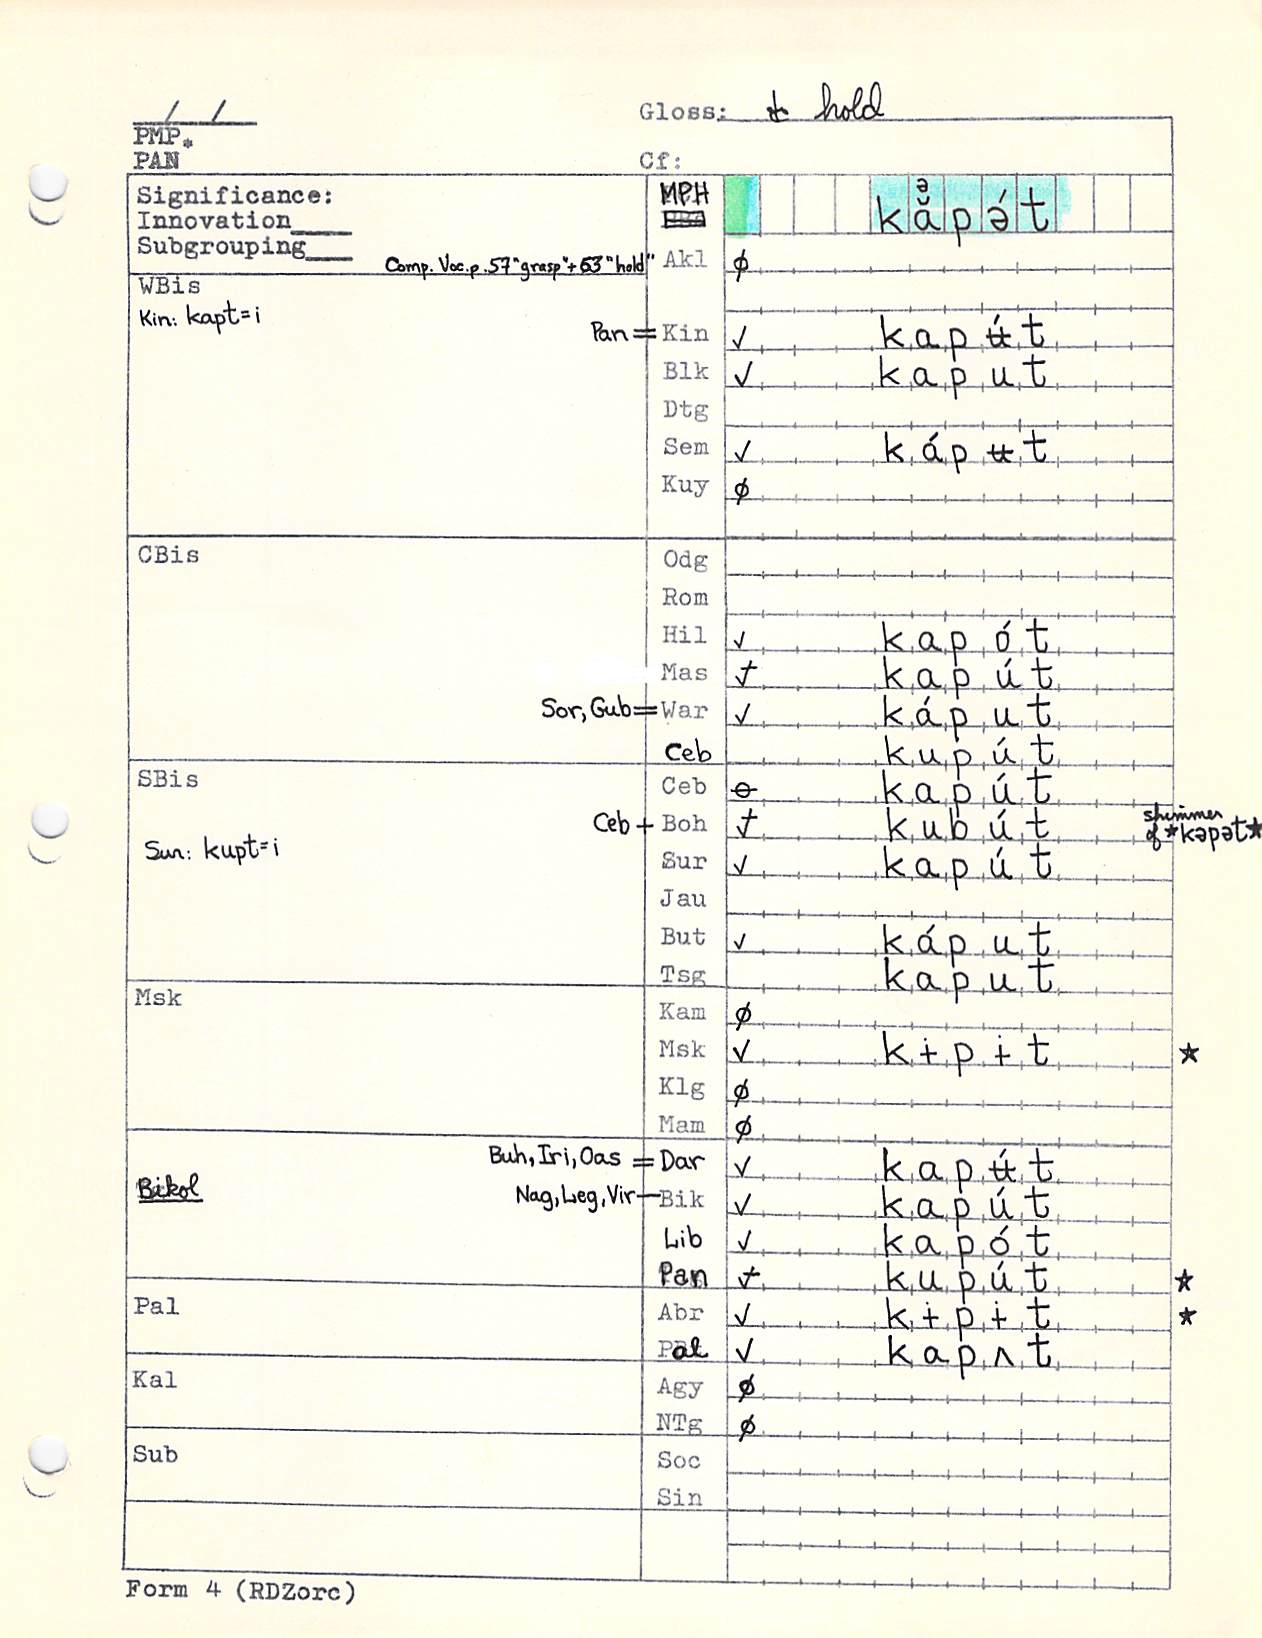 / / Gloss: to hold
PMP.
PAN Cf:
Significance: MPH ə
Innovation____ kăpə́t
Subgrouping____
Comp. Voc. p. 57 "grasp" + 63 "hold" Akl ∅
WBis
Kin: kapt=i
Pan = Kin ✓ kapʉ́t
Blk ✓ kaput
Dtg
Sem ✓ kápʉt
Kuy ∅
CBis
Odg
Rom
Hil ✓ kapót
Mas kapút
Sor, Gub = War ✓ káput
Ceb kupút
SBis
Ceb kapút
Ceb + Boh kubút shimmer
of *kəpət*
Sur: kupt=i
Sur ✓ kapút
Jau
But ✓ káput
Tsg kaput
Msk
Kam ∅
Msk ✓ kɨpɨt ★
Klg ∅
Mam ∅
Buh, Iri, Oas = Dar ✓ kapʉ́t
Bikol
Nag, Leg, Vir — Bik ✓ kapút
Lib ✓ kapót
Pan kupút ★
Pal
Abr ✓ kɨpɨt ★
Pal ✓ kapʌt
Kal
Agy ∅
NTg ∅
Sub
Soc
Sin
Form 4 (RDZorc)